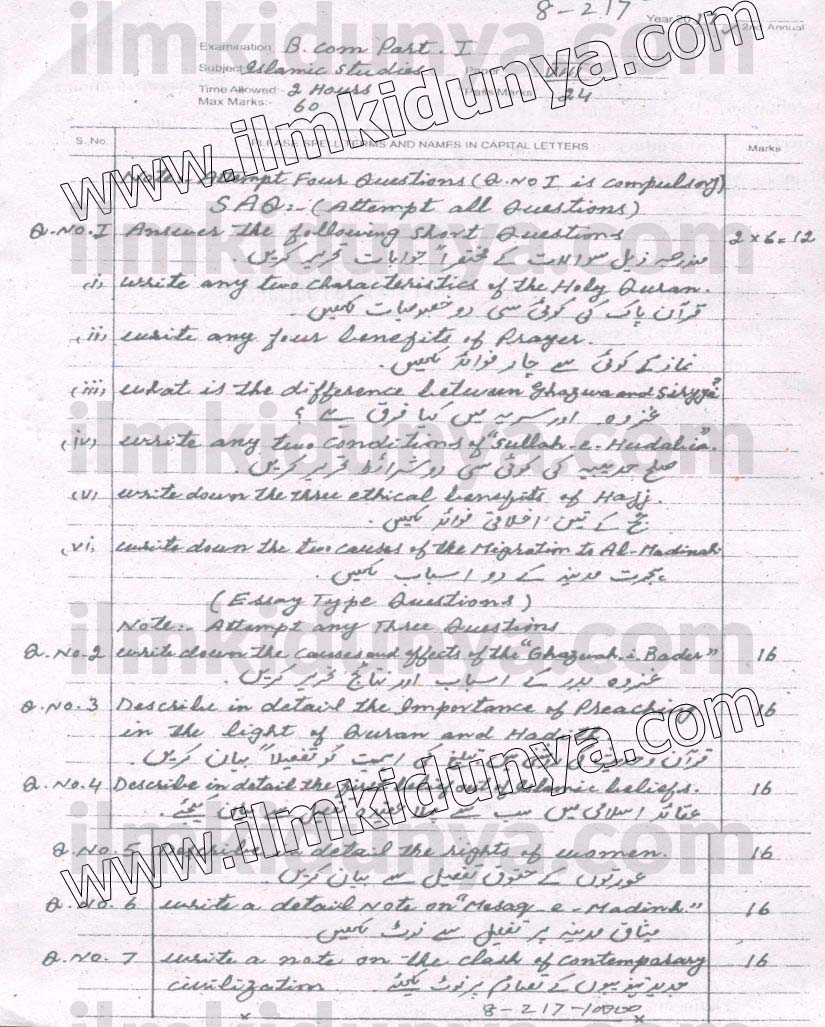 8-217
Year 20 2nd Annual
Examination B. com Part. I
Subject Islamic Studies Paper VIII
Time Allowed:- 2 Hours Pass Marks: 24
Max Marks:- 60
S. No. PLEASE SPELL TERMS AND NAMES IN CAPITAL LETTERS Marks
Note:- Attempt Four Questions (Q. No I is compulsory)
SAQ:- (Attempt all Questions)
Q. No. I Answer the following short Questions 2x6=12
مندرجہ ذیل سوالات کے مختصراً جوابات تحریر کریں۔
(i) write any two characteristics of the Holy Quran.
قرآن پاک کی کوئی سی دو خصوصیات لکھیں۔
(ii) write any four benefits of Prayer.
نماز کے کوئی سے چار فوائد لکھیں۔
(iii) what is the difference between Ghazwa and Siryya?
غزوہ اور سریہ میں کیا فرق ہے؟
(iv) write any two conditions of "Sullah-e-Hudabia".
صلح حدیبیہ کی کوئی سی دو شرائط تحریر کریں۔
(v) write down the three ethical benefits of Hajj.
حج کے تین اخلاقی فوائد لکھیں۔
(vi) write down the two causes of the Migration to Al-Madinah
ہجرت مدینہ کے دو اسباب لکھیں۔
(Essay Type Questions)
Note:- Attempt any Three Questions
Q. No. 2 write down the causes and effects of the "Ghazwah-i-Bader" 16
غزوہ بدر کے اسباب اور نتائج تحریر کریں۔
Q. No. 3 Describe in detail the Importance of Preaching 16
in the light of Quran and Hadith
قرآن و کی اہمیت کو تفصیلاً بیان کریں۔
Q. No. 4 Describe in detail the first out of Islamic beliefs. 16
عقائد اسلامی میں سب سے پہلا عقیدہ تفصیل سے بیان کیجئے۔
Q. No. 5 Describe in detail the rights of women. 16
عورتوں کے حقوق تفصیل سے بیان کریں۔
Q. No. 6 write a detail Note on "Mesaq-e-Madinh" 16
میثاق مدینہ پر تفصیل سے نوٹ لکھیں۔
Q. No. 7 write a note on the clash of contemparary 16
civilization جدید تہذیبوں کے تصادم پر نوٹ لکھئے۔
8-217-10000
www.ilmkidunya.com
www.ilmkidunya.com
ilmkidunya.com
ilmkidunya.com
ilmkidunya.com
ilmkidunya.com
ilmkidunya.com